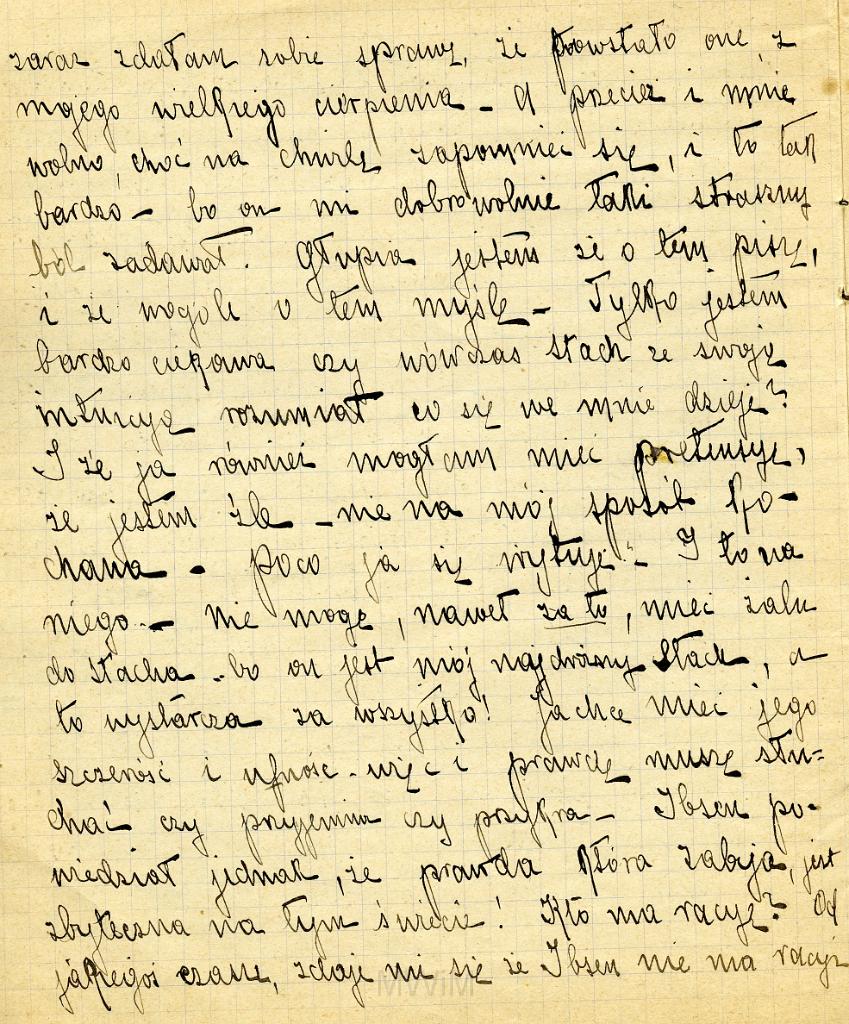 zaraz zdałam sobie sprawę, że powstało one, z
mojego wielkiego cierpienia – A przecież i mnie
wolno, choć na chwilę zapomnieć się, i to tak
bardzo – bo on mi dobrowolnie taki straszny
ból zadawał. Głupia jestem że o tem piszę,
i że wogóle o tem myślę – Tylko jestem
bardzo ciekawa czy wówczas Stach ze swoją
intuicyą rozumiał co się we mnie dzieje?
I że ja również mogłam mieć pretensye,
że jestem źle – nie na mój sposób ko-
chana – Poco ja się irytuję? – I to na
niego – Nie mogę, nawet za to, mieć żalu
do Stacha – bo on jest mój najdroższy Stach, a
to wystarcza za wszystko! Ja chcę mieć jego
szczerość i ufność – więc i prawdę muszę słu=
chać czy przyjemna czy przykra – Ibsen po-
wiedział jednak, że prawda która zabija, jest
zbyteczna na tym świecie! Kto ma racyę? Od
jakiegoś czasu, zdaje mi się że Ibsen nie ma racyi
MWiM